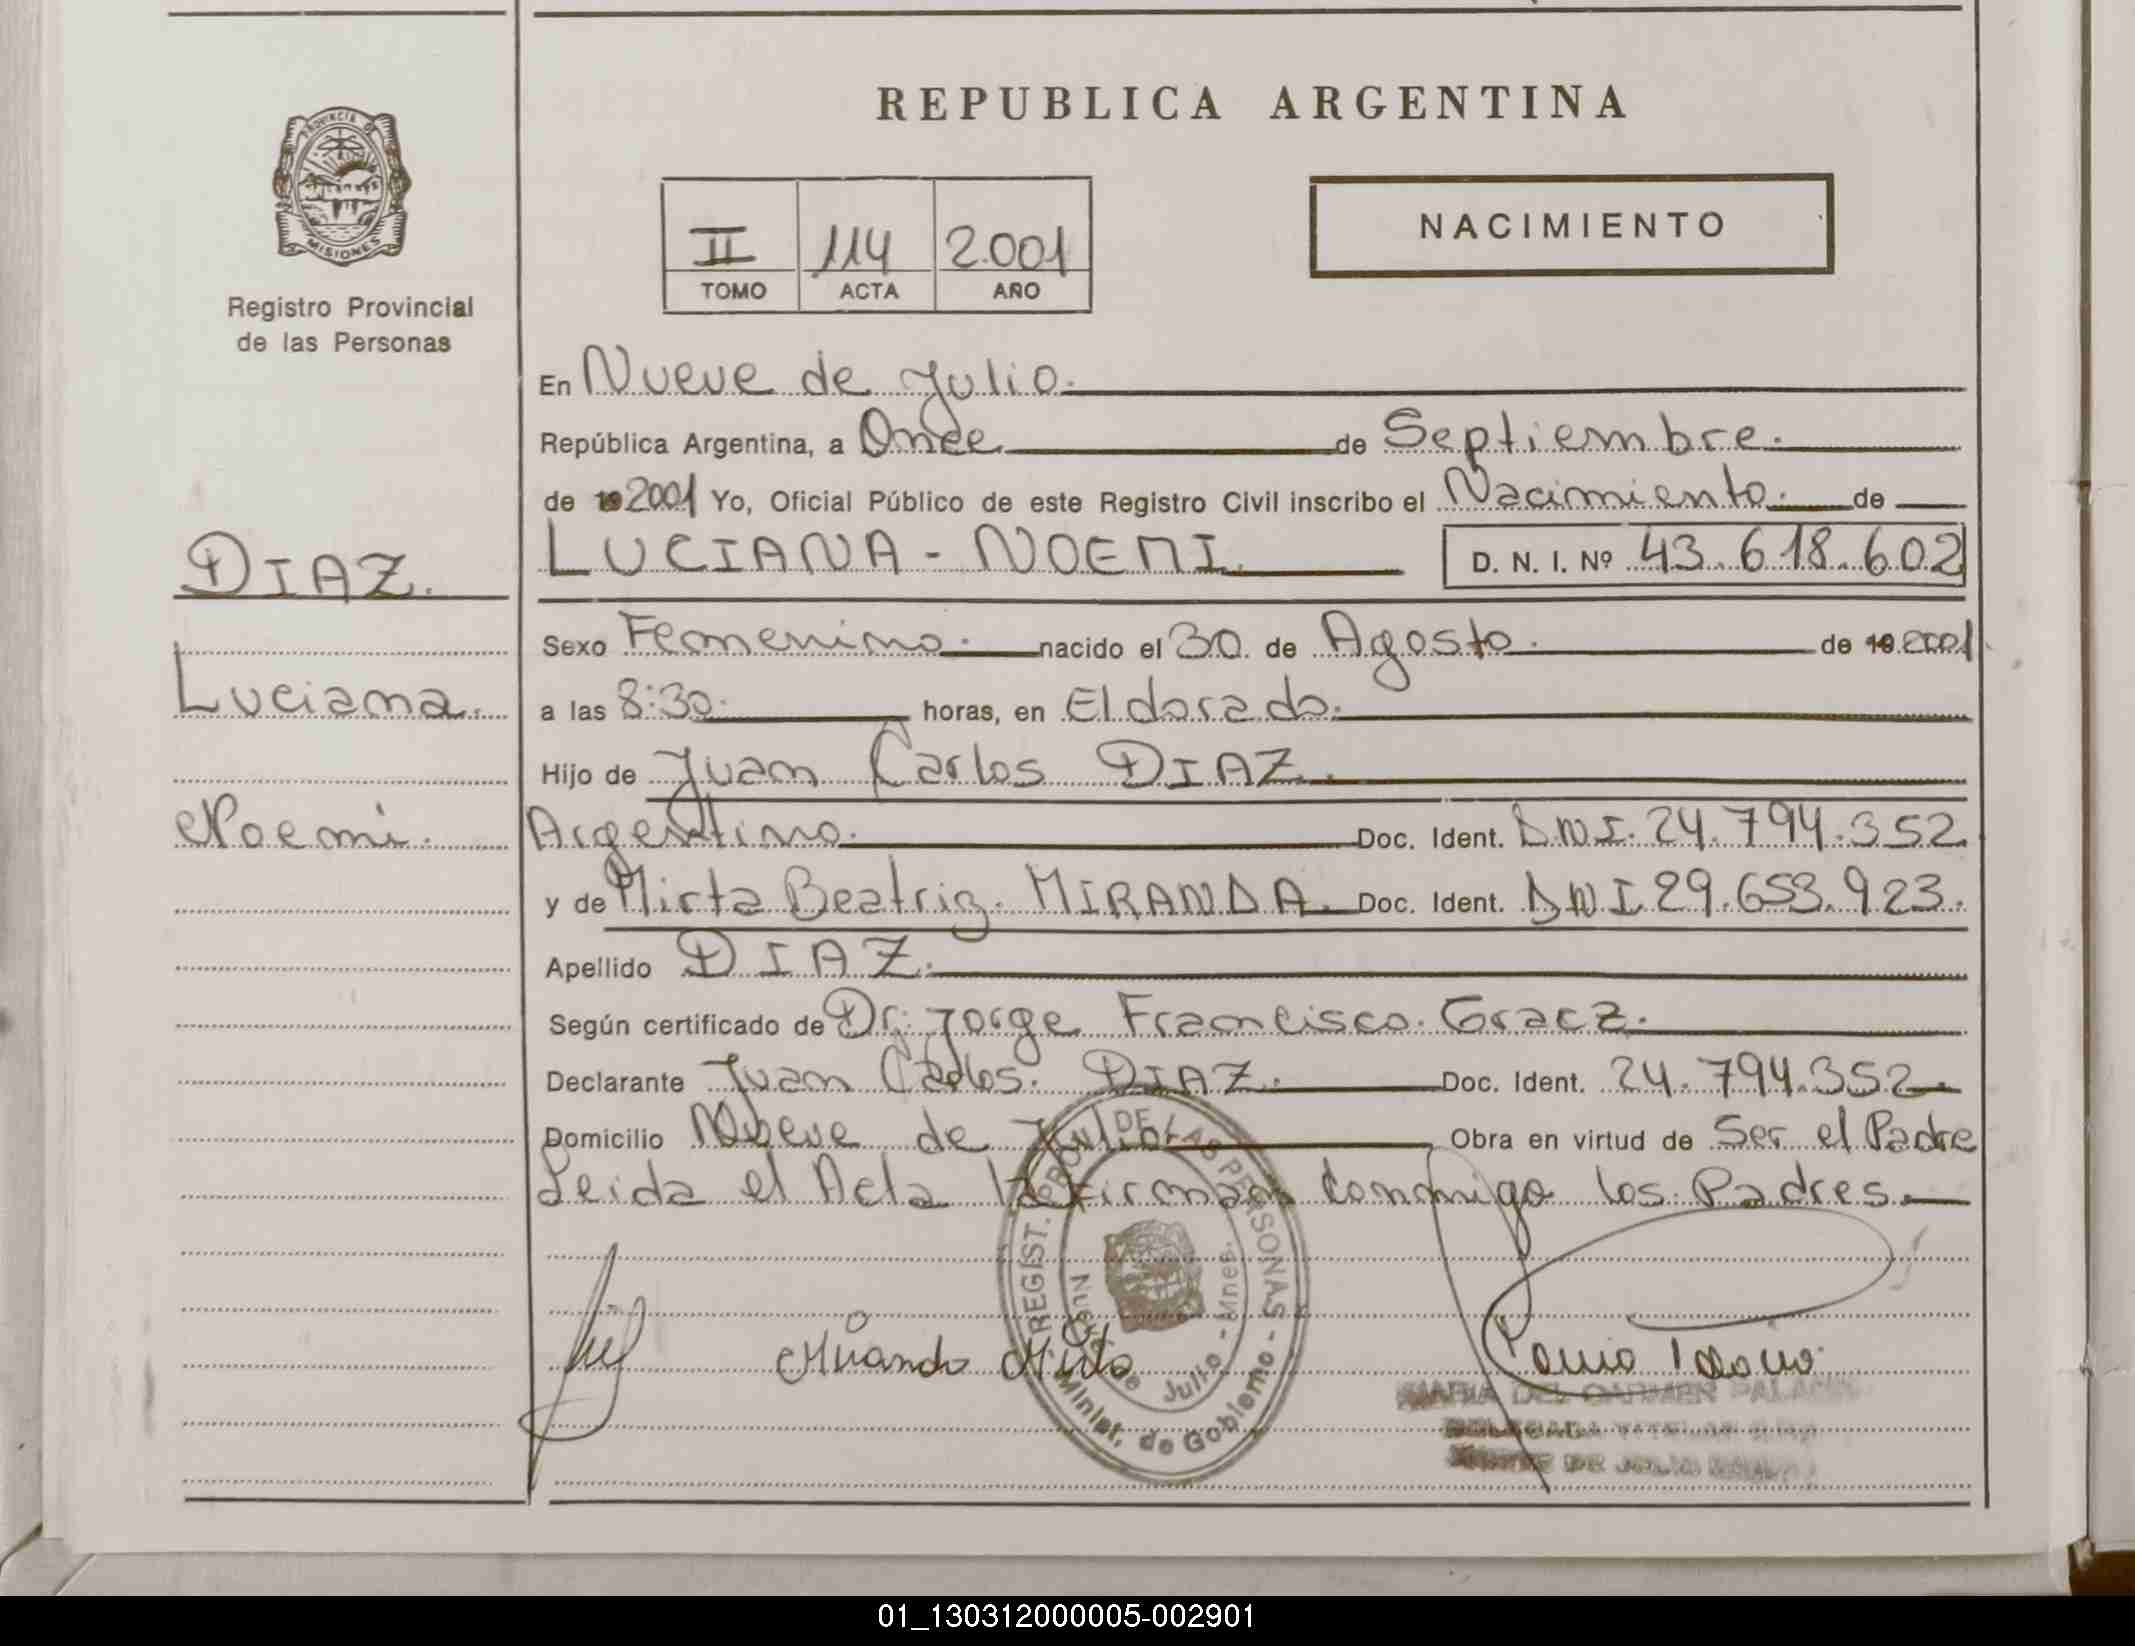 REPUBLICA ARGENTINA
PROVINCIA DE
MISIONES
Registro Provincial
de las Personas
II 114 2.001
TOMO ACTA AÑO
NACIMIENTO
En Nueve de Julio.
República Argentina, a Once de Septiembre.
de 19 2001 Yo, Oficial Público de este Registro Civil inscribo el Nacimiento. de
DIAZ.
LUCIANA - NOEMI. D. N. I. Nº 43.618.602
Sexo Femenino. nacido el 30 de Agosto. de 19 2001
Luciana.
a las 8:30. horas, en Eldorado.
Hijo de Juan Carlos DIAZ.
Noemi.
Argentino. Doc. Ident. D.N.I. 24.794.352
y de Mirta Beatriz. MIRANDA. Doc. Ident. DNI 29.653.923.
Apellido DIAZ.
Según certificado de Dr. Jorge Francisco. Gracz.
Declarante Juan Carlos. DIAZ. Doc. Ident. 24.794.352.
Domicilio Nueve de Julio. Obra en virtud de Ser el Padre
Leida el Acta la Firman conmigo los Padres.
REGIST. PROV. DE LAS PERSONAS - Minist. de Gobierno
Nueve de Julio - Mnes.
Miranda Mirta
MARIA DEL CARMEN
DELEGADA TITULAR
NUEVE DE JULIO
01_130312000005-002901